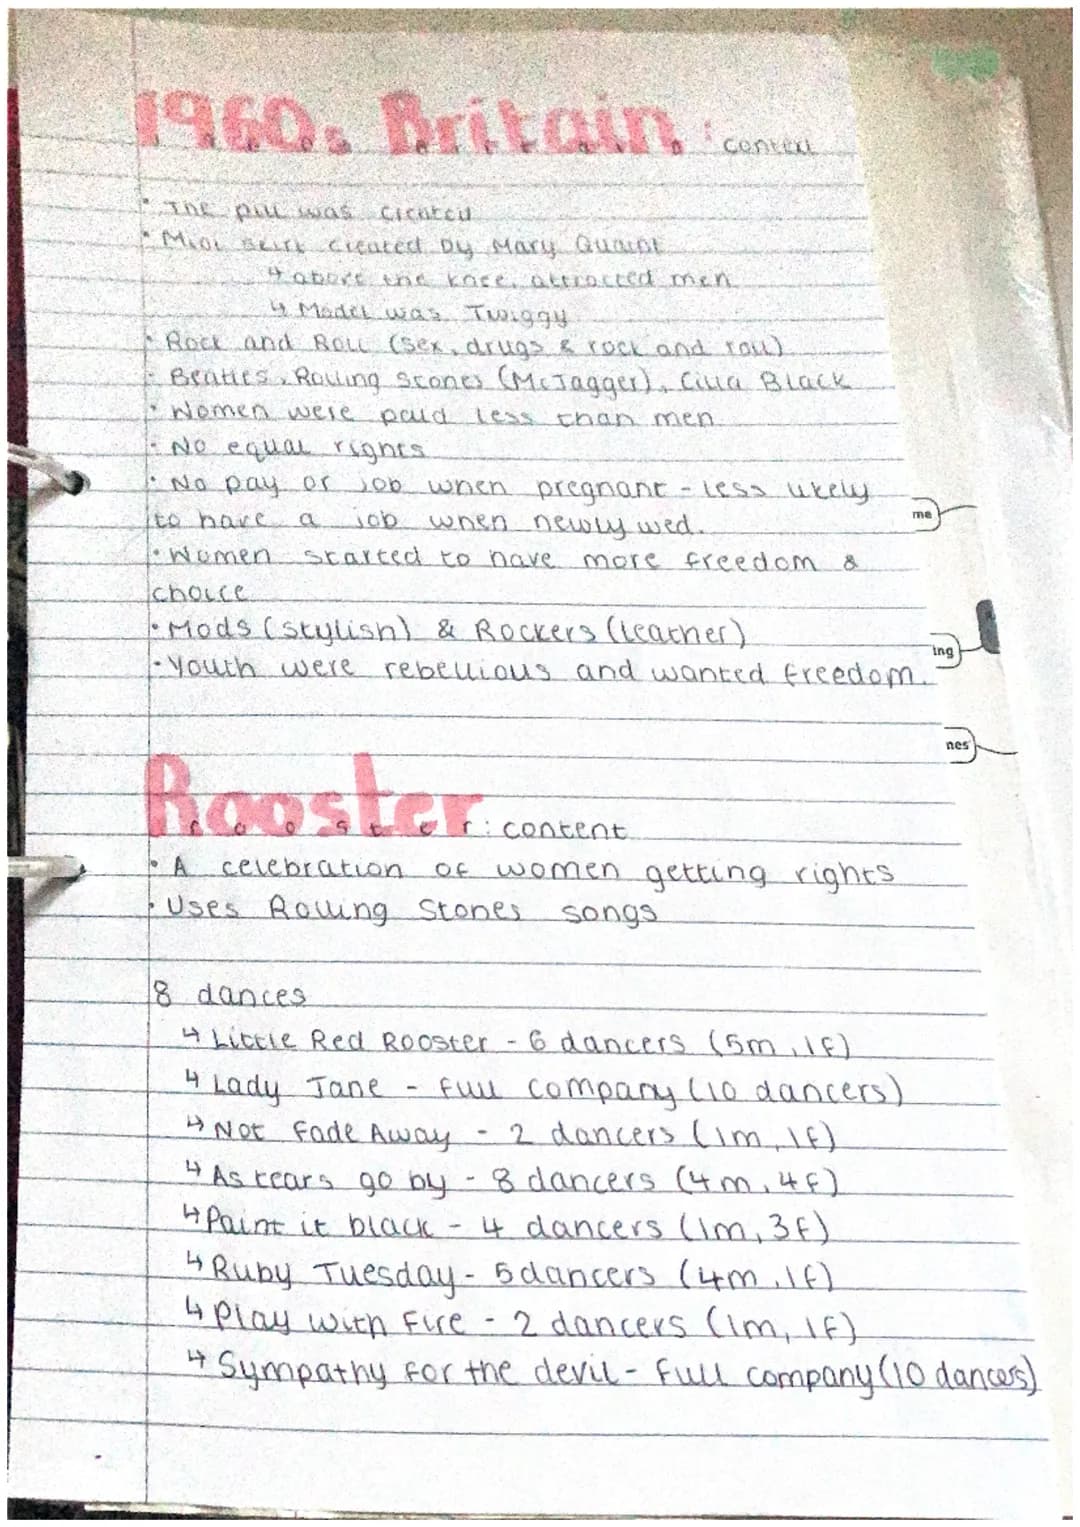 1960s Britain: context
• The pill was created
• Mini skirt created by Mary Quaint
↳ above the knee, attracted men
↳ Model was Twiggy
• Rock and Roll (sex, drugs & rock and roll)
• Beatles, Rolling Stones (McJagger), Cilla Black
• Women were paid less than men
• No equal rights
• No pay or job when pregnant - less likely
to have a job when newly wed.
me
• Women started to have more freedom &
choice
• Mods (stylish) & Rockers (leather)
ing
• Youth were rebellious and wanted freedom.
nes
Rooster: content
• A celebration of women getting rights
• Uses Rolling Stones songs
8 dances
↳ Little Red Rooster - 6 dancers (5m, 1f)
↳ Lady Jane - full company (10 dancers)
↳ Not Fade Away - 2 dancers (1m, 1f)
↳ As tears go by - 8 dancers (4m, 4f)
↳ Paint it black - 4 dancers (1m, 3f)
↳ Ruby Tuesday - 5 dancers (4m, 1f)
↳ Play with Fire - 2 dancers (1m, 1f)
↳ Sympathy for the devil - full company (10 dances)